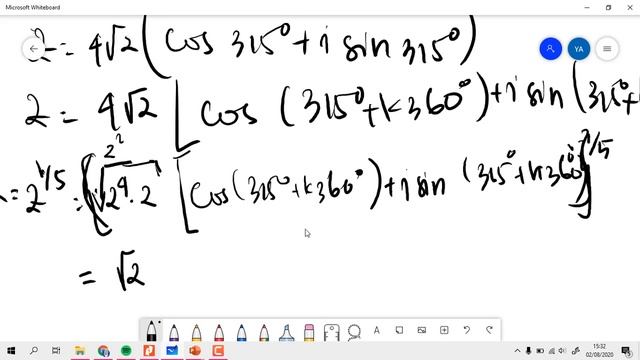 Microsoft Whiteboard
2 = 4√2 (cos 315° + i sin 315°)
YA
2 = 4√2 [cos (315° + k360°) + i sin (315° + k
2²
= 2^1/5 = (√2⁴.2 [cos(315° + k360°) + i sin (315° + k360°)]^1/5
= √2
A
15:32
02/08/2020